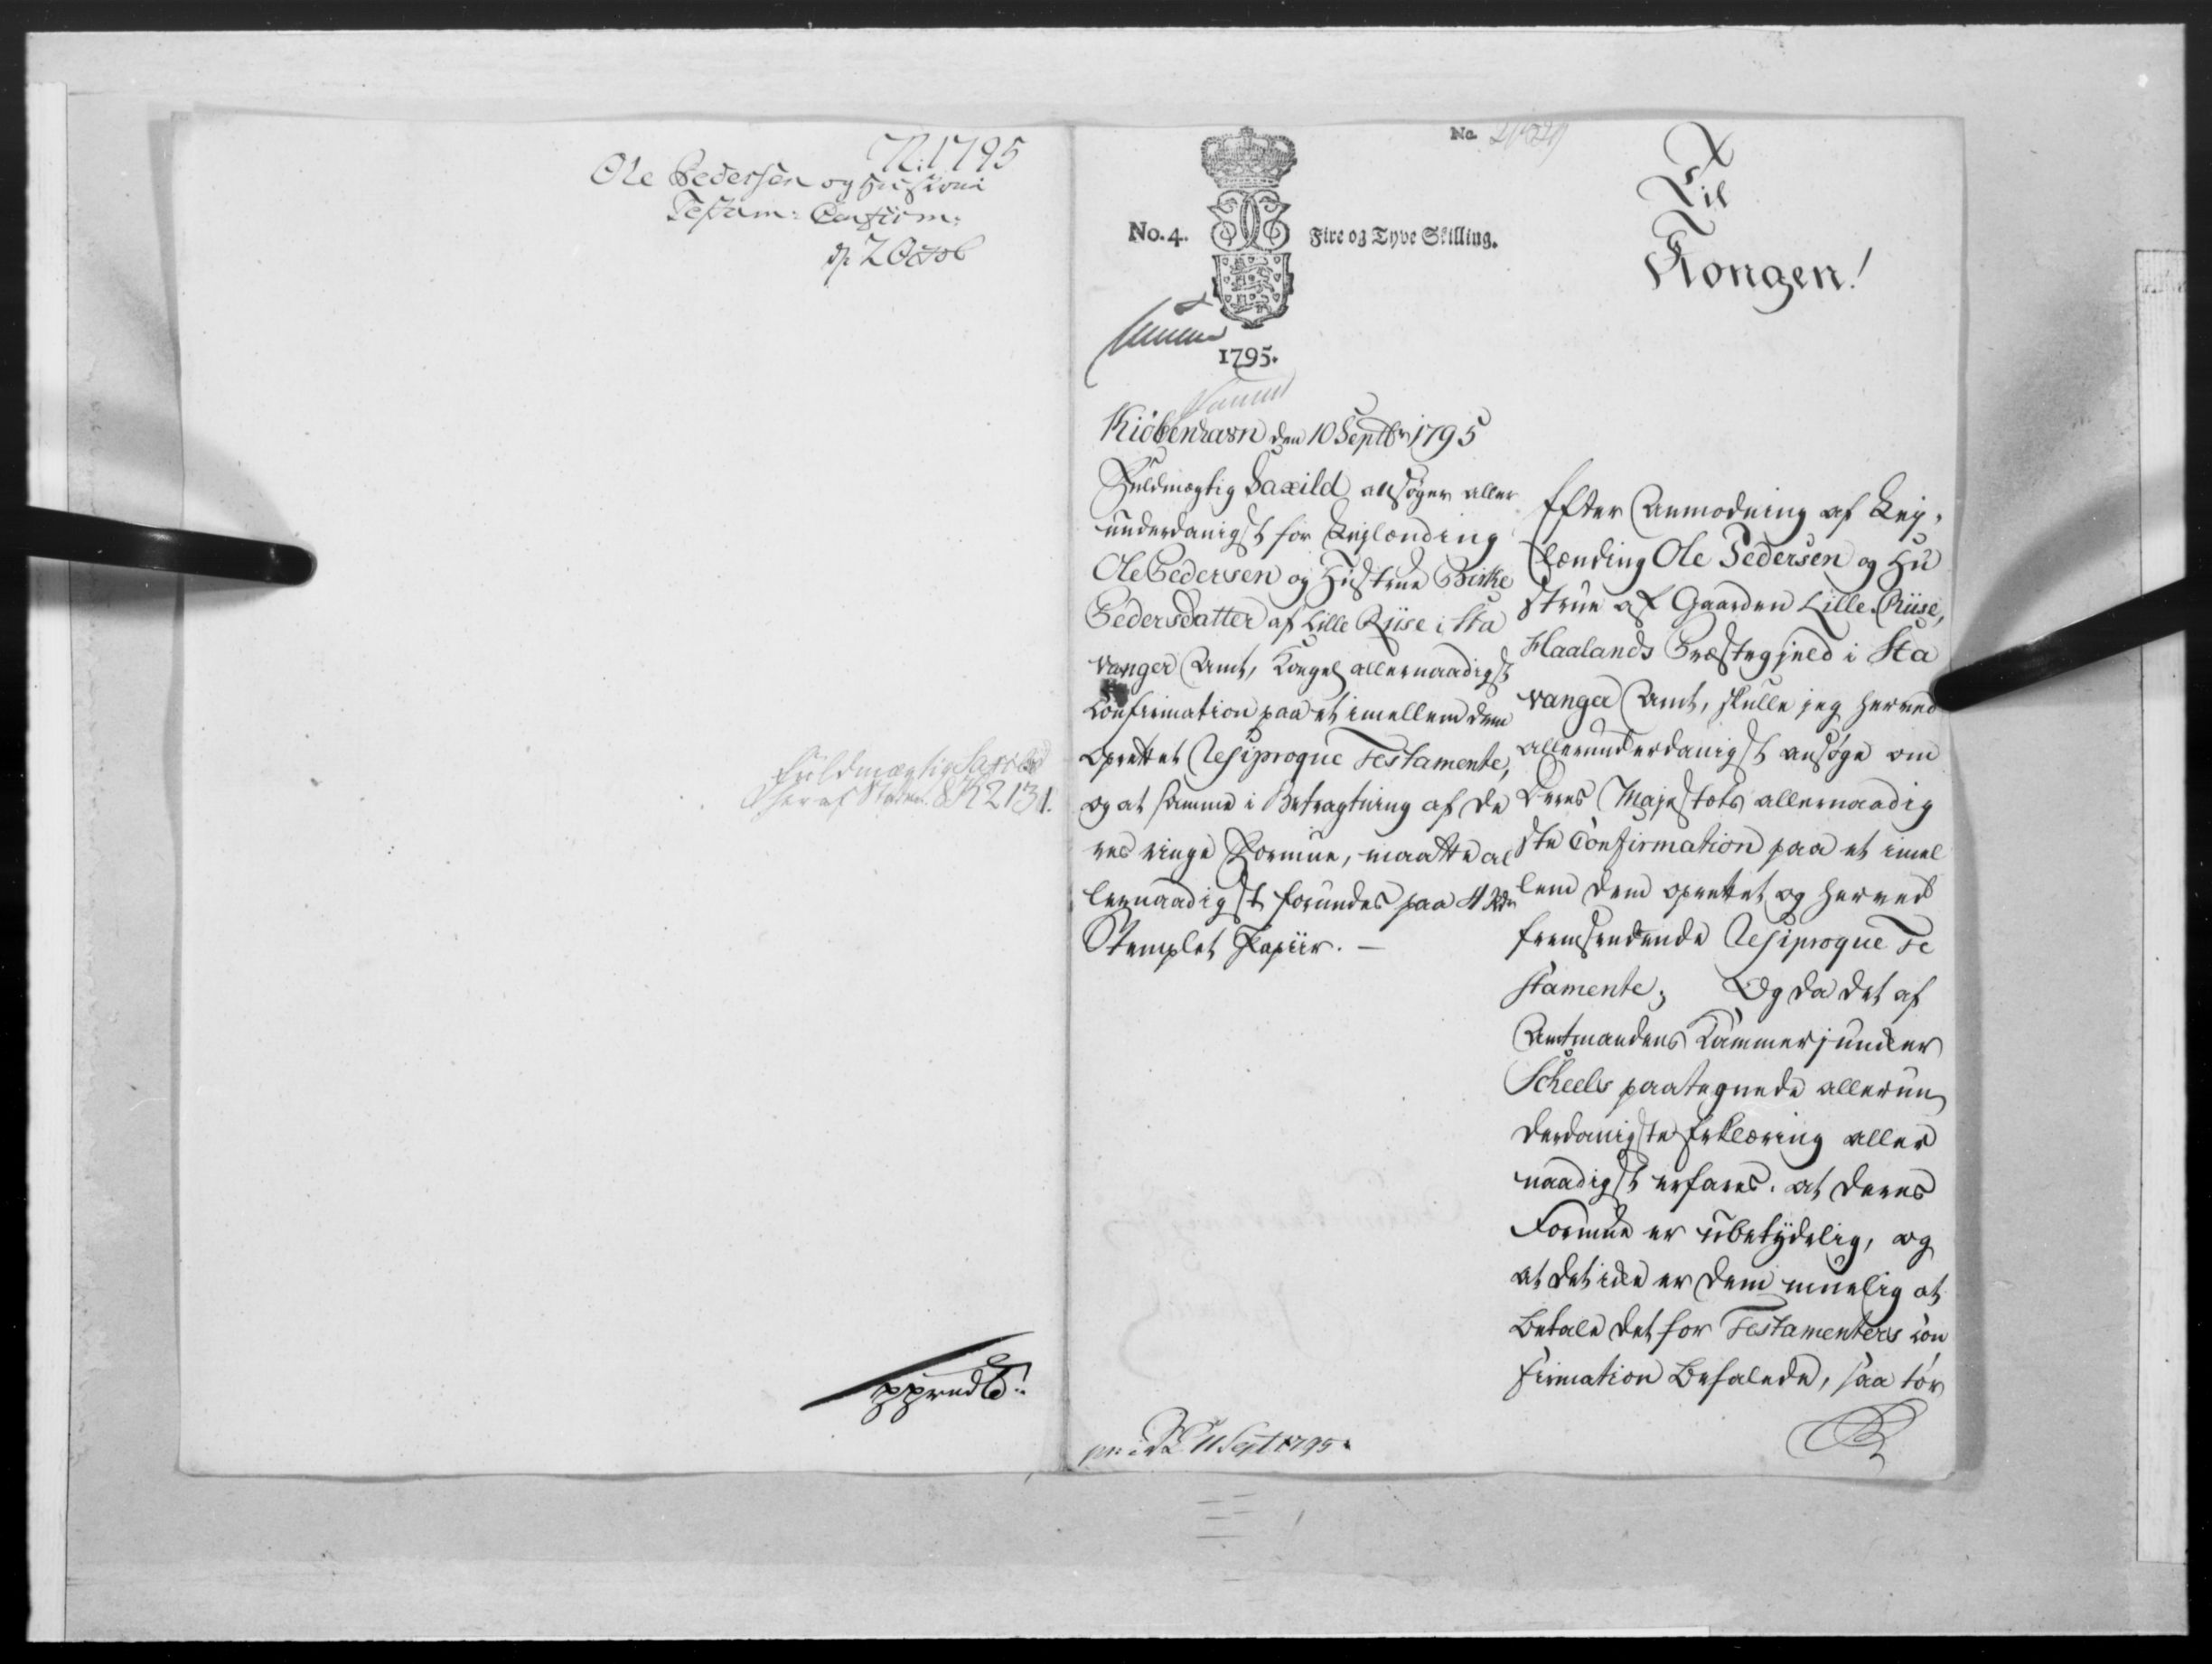 N: 1795
Ole Pedersen og Hustrues
Testam: Confirm:
dp 2 Octob
Fuldmægtig Saxild
No. 4. Fire og Tyve Skilling.
1795.
No.
Til
Kongen!
Kiöbenhavn den 10 Septbr 1795
Fuldmægtig Saxild ansøger aller
underdanigst for Leylænding
Ole Pedersen og Hustrue Birke
Pedersdatter af Lille Riise i Sta
vanger Amt, Kongel allernaadigst
Confirmation paa et imellem dem
oprettet Resiproque Testamente,
og at samme i Betragtning af De
res ringe Formue, maatte al
lernaadigst forundes paa 4 Rdr
Stemplet Papiir. —
pr: i 11 Sept 1795.
Efter Anmodning af Ley,
lænding Ole Pedersen og Hu
strue af Gaarden Lille Riise,
Haalands Præstegjeld i Sta
vanger Amt, skulle jeg herved
allerunderdanigst ansøge om
Deres Majestæts allernaadig
ste Confirmation paa et imel
lem dem oprettet og herved
fremsendende Resiproque Te
stamente; Og da det af
Amtmandens Kammerjunker
Scheels paategnede allerun
derdanigste Erklæring aller
naadigst erfares, at deres
Formue er ubetydelig, og
at det ikke er dem muelig at
betale det for Testamenters Con
firmation befalede, saa tør